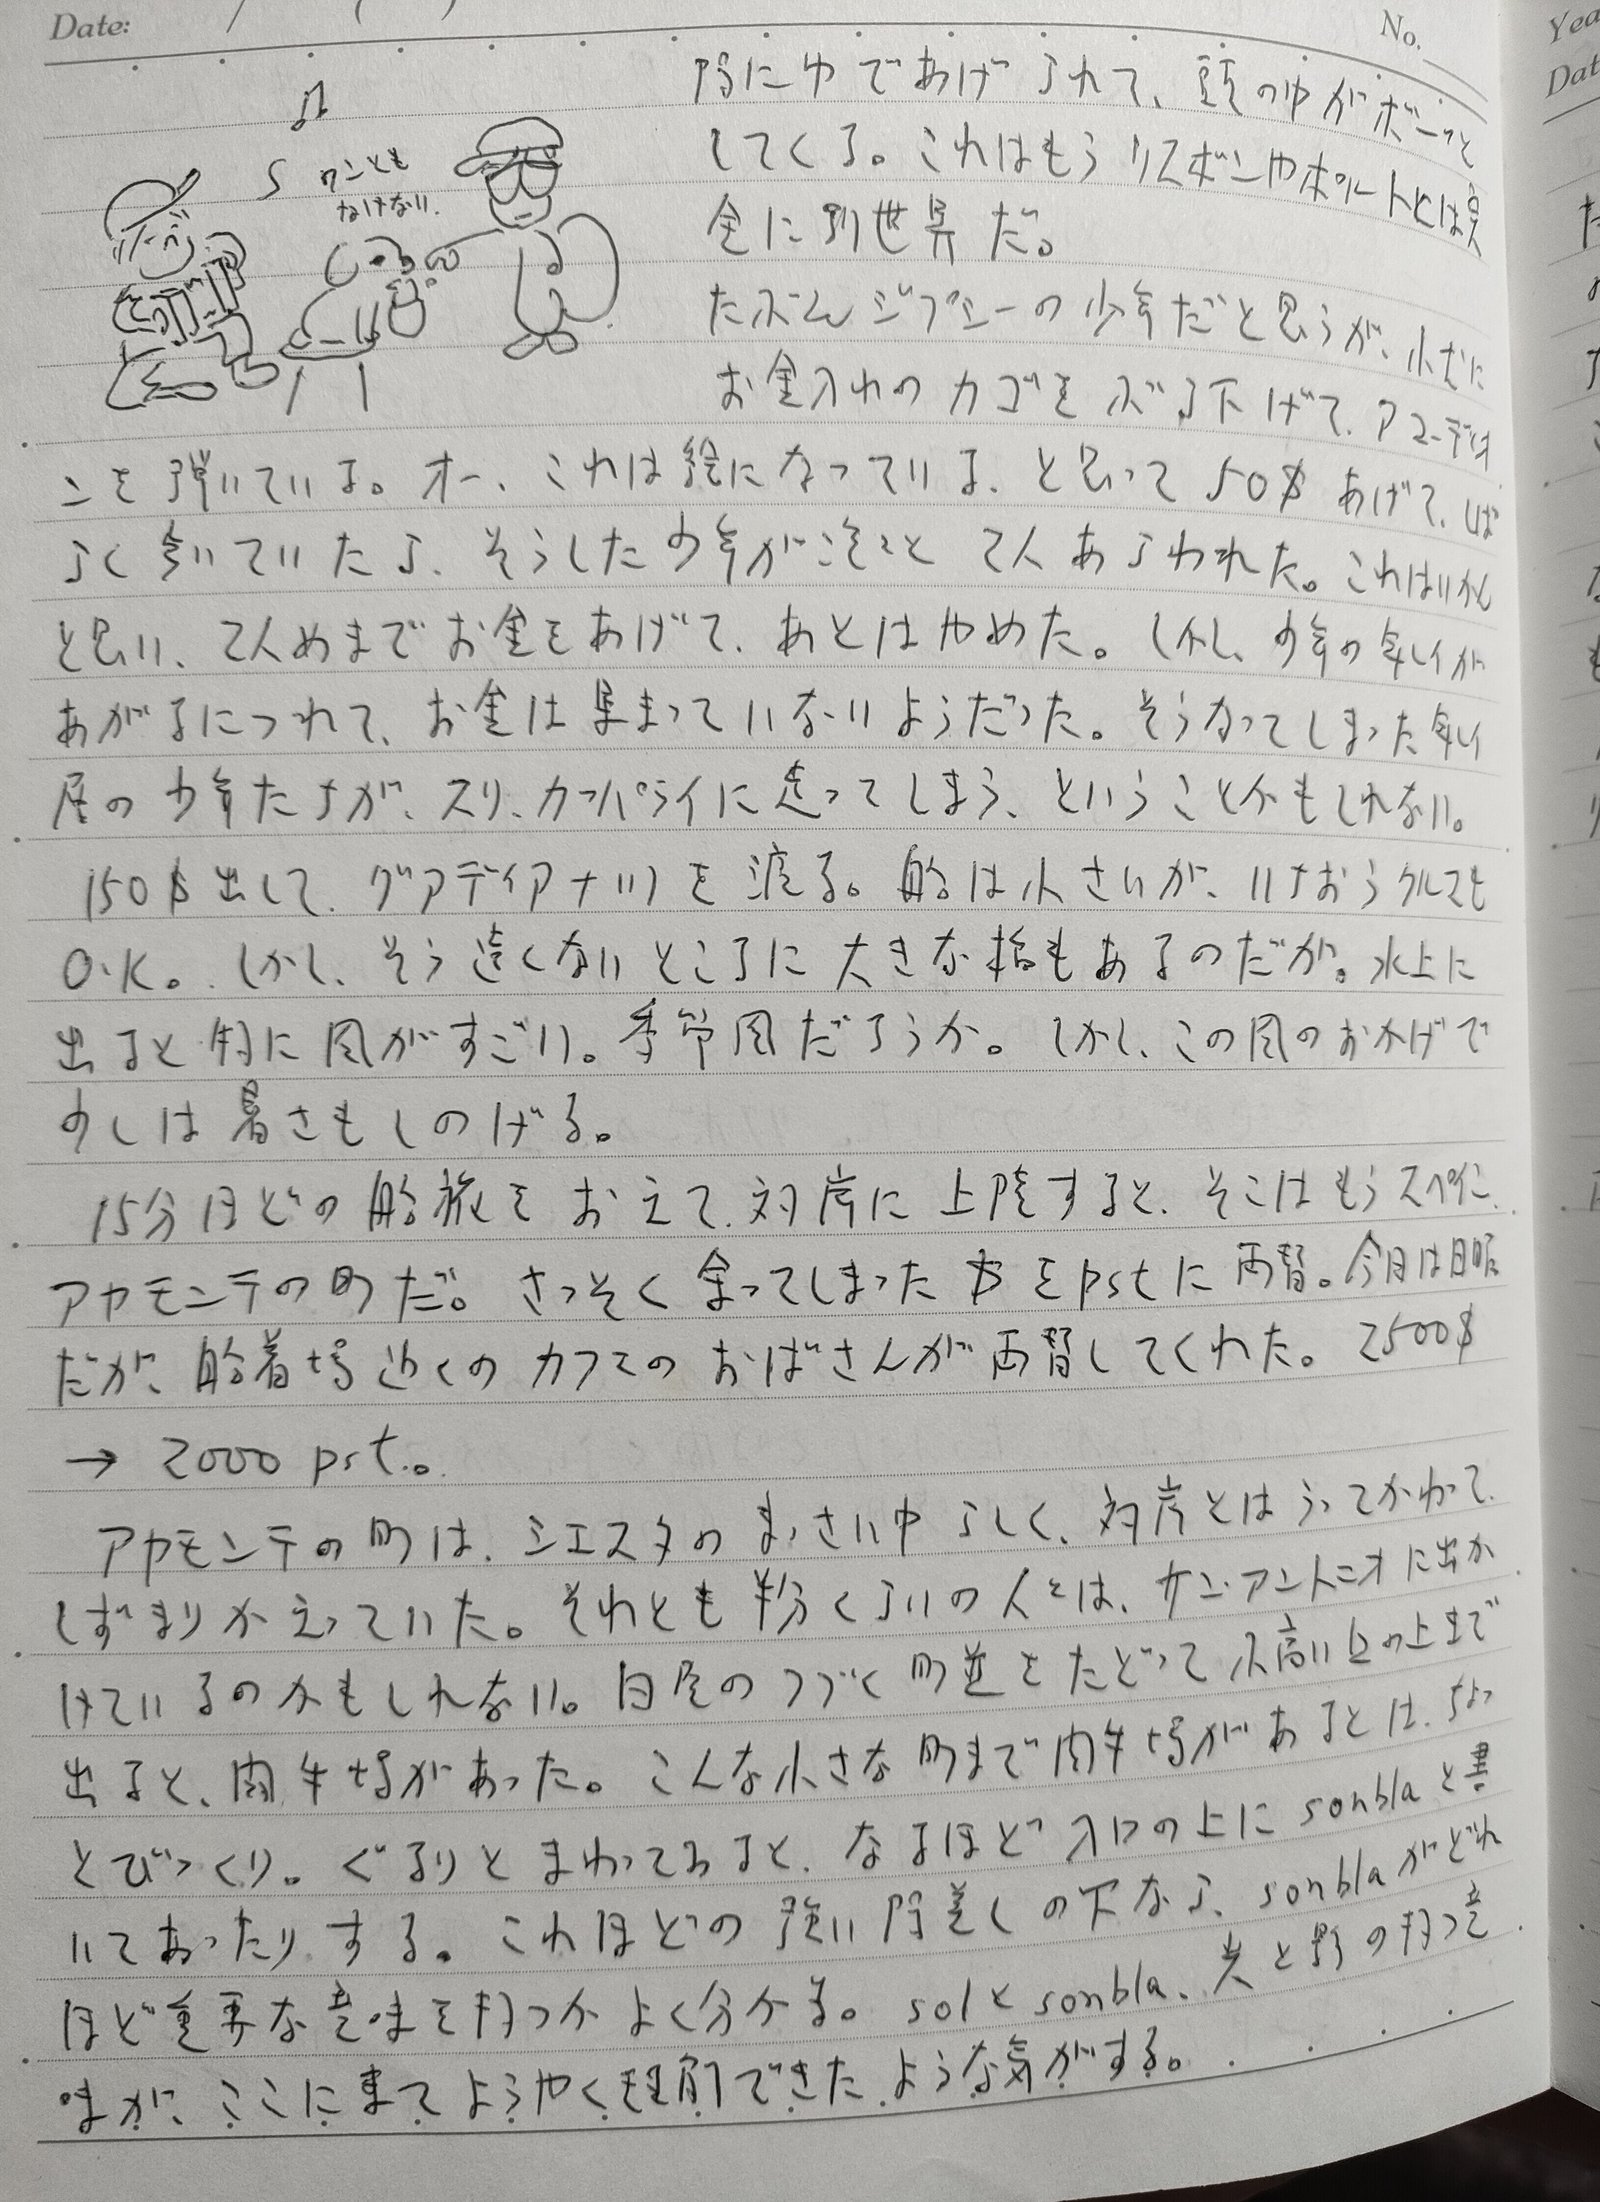 Date:
No.
陽にゆであげられて、頭の中がボーッと
してくる。これはもうリスボンやポルトとは完
全に別世界だ。
たぶんジプシーの少年だと思うが、小犬に
お金入れのカゴをぶら下げて、アコーディオ
ワンとも
なけない。
ンを弾いている。オー、これは絵になっている、と思って50$あげて、しば
らく歩いていたら、そうした少年が次々と 人あらわれた。これはいかん
と思い、2人めまでお金をあげて、あとはやめた。しかし、少年の年令が
あがるにつれて、お金は集まっていないようだった。そうなってしまった年令
層の少年たちが、スリ、カッパライに走ってしまう、ということかもしれない。
150$出して、グアディアナ川を渡る。船は小さいが、いちおうクルマも
O.K。しかし、そう遠くないところに大きな橋もあるのだが。水上に
出ると特に風がすごい。季節風だろうか。しかし、この風のおかげで
少しは暑さもしのげる。
15分ほどの船旅をおえて、対岸に上陸すると、そこはもうスペイン、
アヤモンテの町だ。さっそく余ってしまった$をpstに両替。今日は日曜
だが、船着場近くのカフェのおばさんが両替してくれた。2500$
→ 2000 pst.。
アヤモンテの町は、シエスタのまっさい中らしく、対岸とはうってかわって、
しずまりかえっていた。それとも半分くらいの人々は、サン・アントニオに出か
けているのかもしれない。白壁のつづく町並をたどって小高い丘の上まで
出ると、闘牛場があった。こんな小さな町まで闘牛場があるとは、ちょっ
とびっくり。ぐるりとまわってみると、なるほど入口の上にsonblaと書
いてあったりする。これほどの強い陽差しの下なら、sonblaがどれ
ほど重要な意味を持つかよく分かる。solとsonbla、光と影の持つ意
味が、ここに来てようやく理解できたような気がする。
Yea
Dat